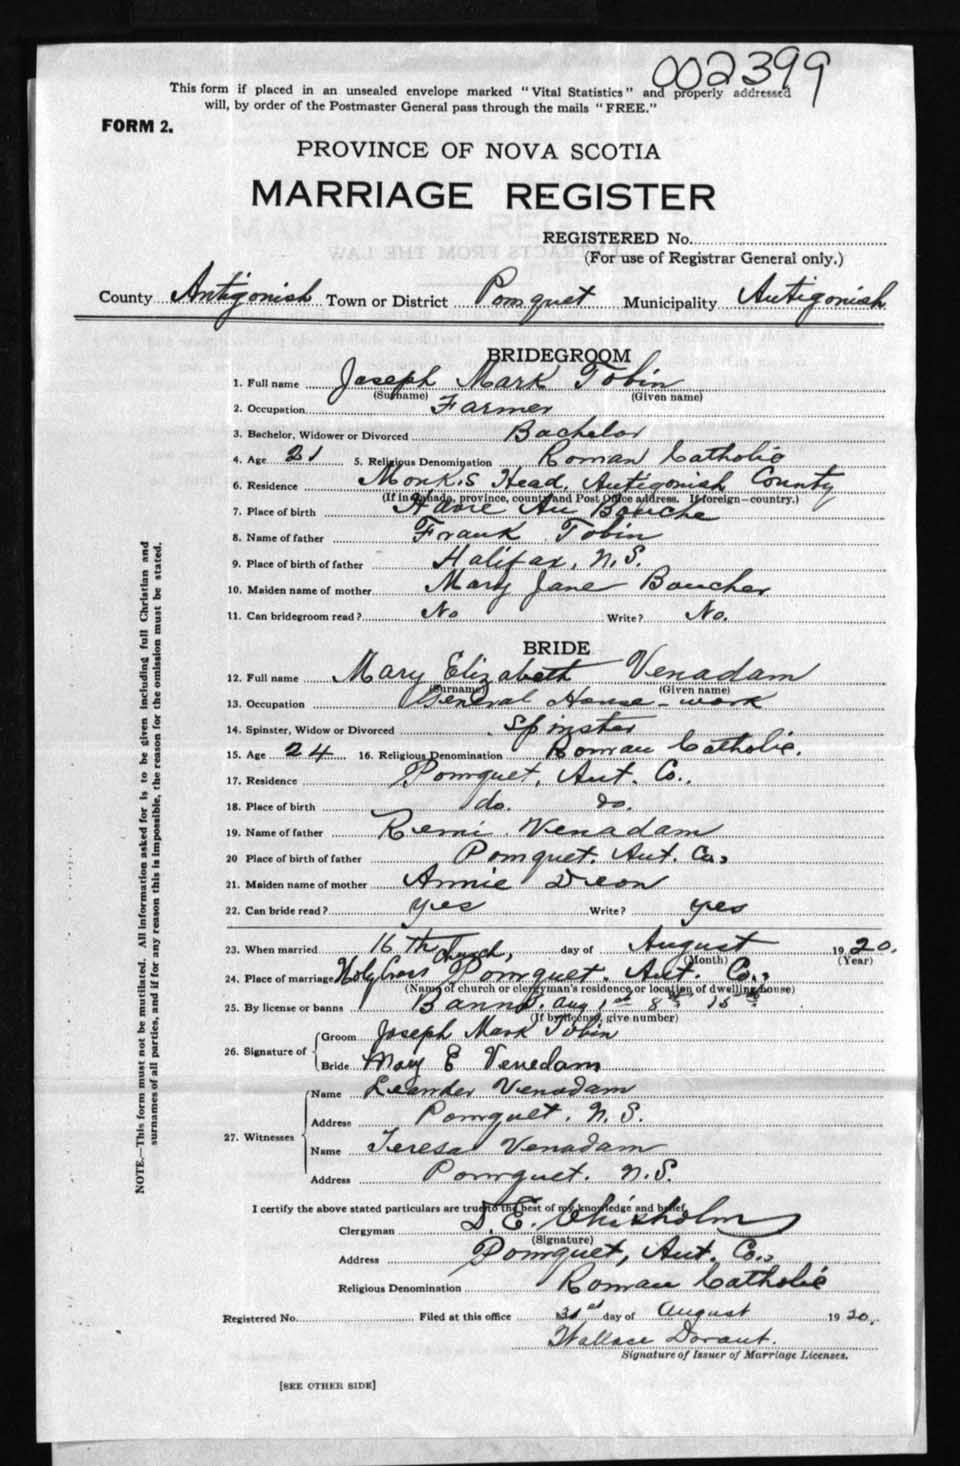 002399
This form if placed in an unsealed envelope marked "Vital Statistics" and properly addressed
will, by order of the Postmaster General pass through the mails "FREE."
FORM 2.
PROVINCE OF NOVA SCOTIA
MARRIAGE REGISTER
REGISTERED No.
(For use of Registrar General only.)
County Antigonish Town or District Pomquet Municipality Antigonish
BRIDEGROOM
1. Full name Joseph Mark Tobin
(Surname) (Given name)
2. Occupation Farmer
3. Bachelor, Widower or Divorced Bachelor
4. Age 21 5. Religious Denomination Roman Catholic
6. Residence Monk's Head, Antigonish County
(If in Canada, province, county and Post Office address. If foreign—country.)
7. Place of birth Havre Au Bouche
8. Name of father Frank Tobin
9. Place of birth of father Halifax, N.S.
10. Maiden name of mother Mary Jane Boucher
11. Can bridegroom read? No Write? No.
BRIDE
12. Full name Mary Elizabeth Venadam
(Surname) (Given name)
13. Occupation General House-work
14. Spinster, Widow or Divorced Spinster
15. Age 24 16. Religious Denomination Roman Catholic.
17. Residence Pomquet, Ant. Co.
18. Place of birth do. do.
19. Name of father Remi Venadam
20 Place of birth of father Pomquet. Ant. Co.
21. Maiden name of mother Annie Deon
22. Can bride read? yes Write? yes
23. When married 16th day of August 1920.
(Month) (Year)
24. Place of marriage Holy Cross Church, Pomquet. Ant. Co.
(Name of church or clergyman's residence or location of dwelling house)
25. By license or banns Banns, Aug 1st 8th 15th
(If by license, give number)
26. Signature of
Groom Joseph Mark Tobin
Bride Mary E Venedam
27. Witnesses
Name Leander Venadam
Address Pomquet. N.S.
Name Teresa Venadam
Address Pomquet. N.S.
I certify the above stated particulars are true to the best of my knowledge and belief.
Clergyman D. E. Chisholm
(Signature)
Address Pomquet, Ant. Co.
Religious Denomination Roman Catholic
Registered No. Filed at this office day of August 1920.
Wallace
Signature of Issuer of Marriage Licenses.
[SEE OTHER SIDE]
NOTE.—This form must not be mutilated. All information asked for is to be given including full Christian and
surnames of all parties, and if for any reason this is impossible, the reason for the omission must be stated.